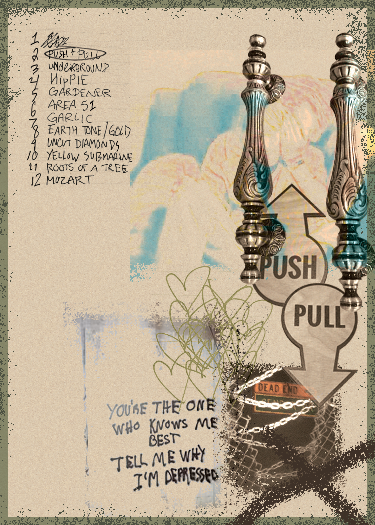 1
2 PUSH + PULL
3 UNDERGROUND
4 HIPPIE
5 GARDENER
6 AREA 51
7 GARLIC
8 EARTH TONE/GOLD
9 UNCUT DIAMONDS
10 YELLOW SUBMARINE
11 ROOTS OF A TREE
12 MOZART
PUSH
PULL
DEAD END
YOU'RE THE ONE
WHO KNOWS ME
BEST
TELL ME WHY
I'M DEPRESSED